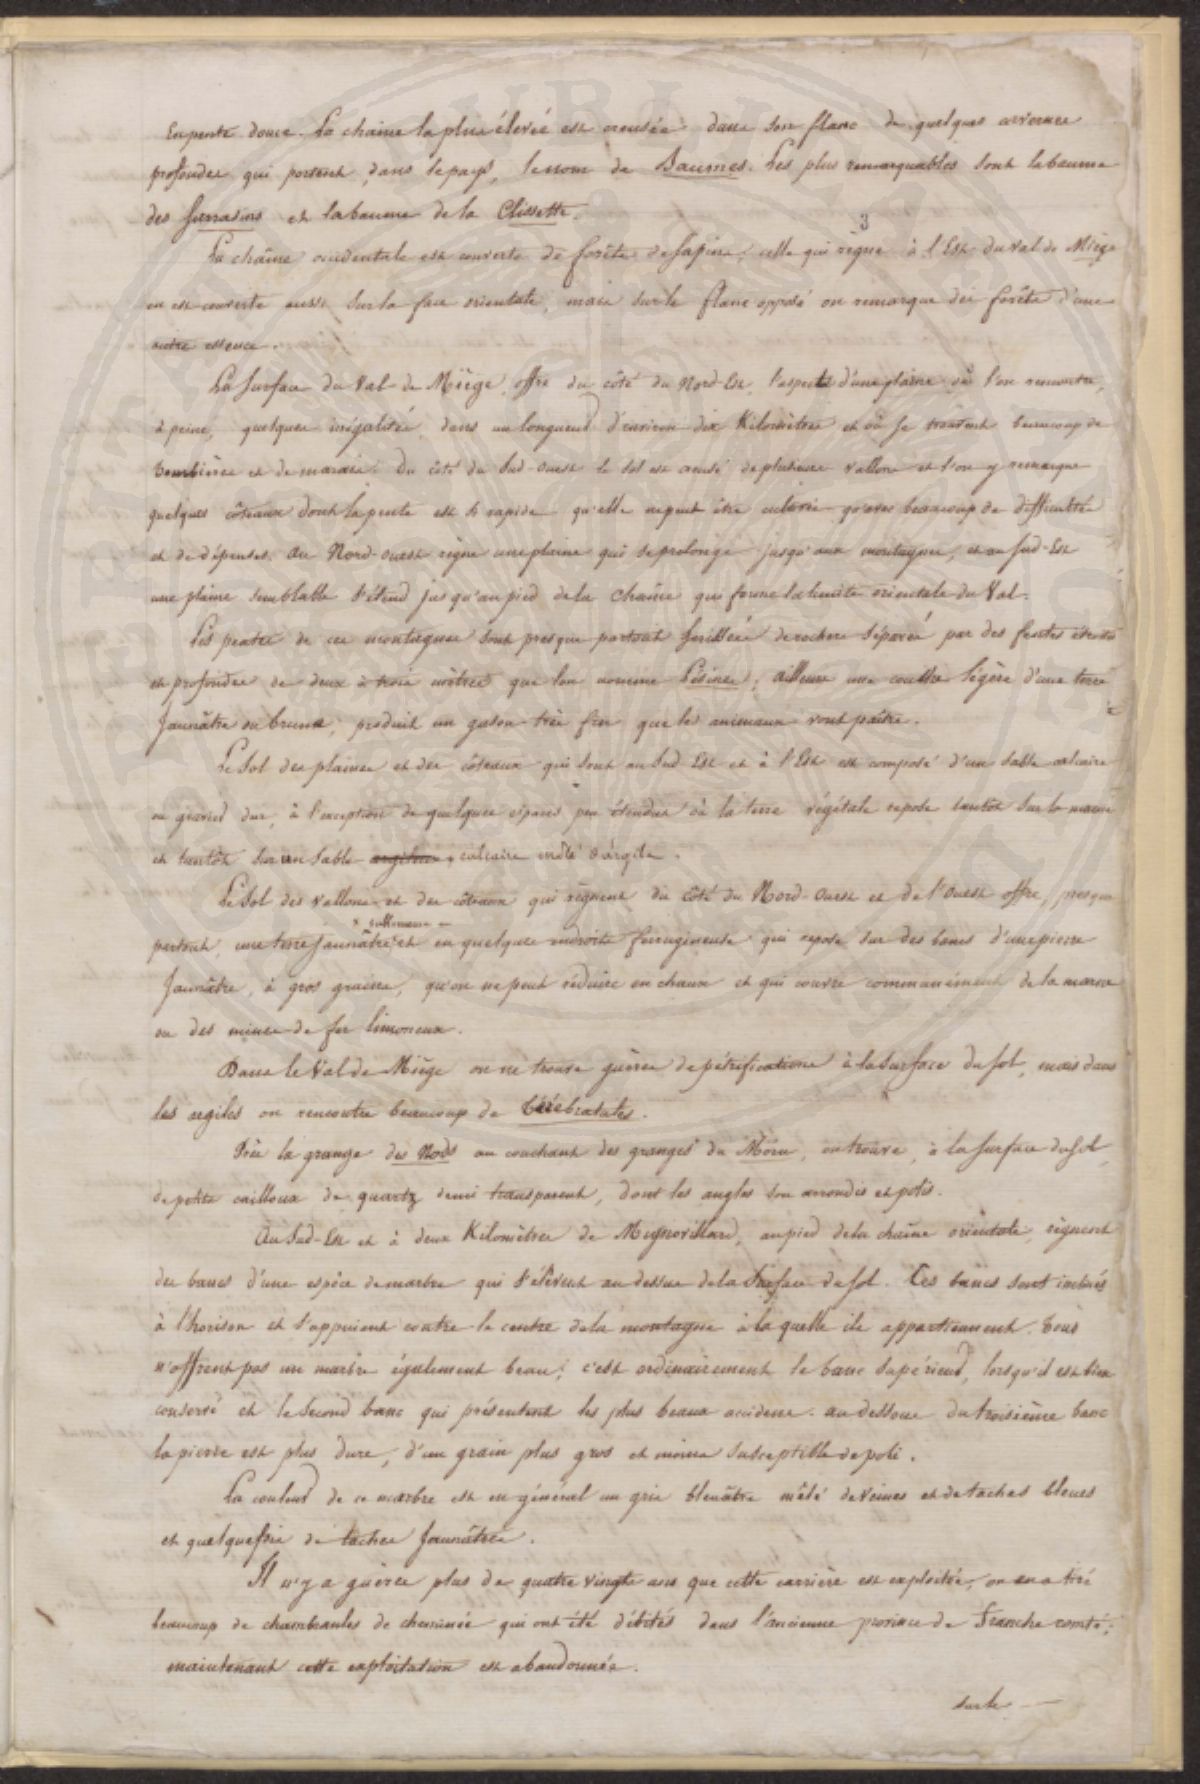 En pente douce. La chaine la plus élevée est creusée dans son flanc de quelques cavernes
profondes qui portent, dans le pays, le nom de Baumes. Les plus remarquables sont la baume
des Sarrasins et la baume de la Clissette.
3
La chaîne occidentale est couverte de forêts de sapins; celle qui règne à l'Est du val de Miège
en est couverte aussi sur la face orientale, mais sur le flanc opposé on remarque des forêts d'une
autre essence.
La surface du Val de Miège, offre du côté du Nord-Est, l'aspect d'une plaine où l'on rencontre,
à peine, quelques inégalités, dans une longueur d'environ dix Kilomètres et où se trouvent beaucoup de
tourbières et de marais. Du côté du Sud-Ouest le sol est creusé de plusieurs vallons et l'on y remarque
quelques côteaux dont la pente est si rapide qu'elle ne peut être cultivée qu'avec beaucoup de difficultés
et de dépenses. Au Nord-Ouest règne une plaine qui se prolonge jusqu'aux montagnes, et au Sud-Est
une plaine semblable s'étend jusqu'au pied de la chaîne qui forme la limite orientale du Val.
Les pentes de ces montagnes sont presque partout de rochers séparés par des fentes étroites
et profondes de deux à trois mètres que l'on nomme Lésines; ailleurs une couche légère d'une terre
Jaunâtre ou brune, produit un gason très fin que les animaux vont paître.
Le Sol des plaines et des côteaux qui sont au Sud Est et à l'Est est composé d'un sable calcaire
ou gravier dur, à l'exception de quelques espaces peu étendus où la terre végétale repose tantôt sur la marne
et tantôt sur un sable argileux, calcaire mêlé d'argile.
Le Sol des vallons et des côteaux qui règnent du côté du Nord-Ouest et de l'Ouest offre, presque
partout, une terre Jaunâtre et en quelques endroits ferrugineuse qui repose sur des bancs d'une pierre
Jaunâtre, à gros grains, qu'on ne peut réduire en chaux et qui couvre communément de la marne
ou des mines de fer limoneux.
Dans le Val de Miège on ne trouve guères de pétrifications à la surface du sol, mais dans
les argiles on rencontre beaucoup de térébratules.
Près la grange des Nods au couchant des granges du Moru, on trouve, à la surface du sol,
de petits cailloux de quartz demi transparent, dont les angles son arrondis et polis.
Au Sud-Est et à deux Kilomètres de Mignovillard, au pied de la chaîne orientale, règnent
des bancs d'une espèce de marbre qui s'élèvent au dessus de la surface du sol. Ces bancs sont inclinés
à l'horison et s'appuient contre le centre de la montagne à la quelle ils appartiennent. Tous
n'offrent pas un marbre également beau; c'est ordinairement le banc supérieur, lorsqu'il est bien
conservé et le second banc qui présentent les plus beaux accidens. au dessous du troisième banc
la pierre est plus dure, d'un grain plus gros et moins susceptible de poli.
La couleur de ce marbre est en général un gris bleuâtre mêlé de veines et de taches bleues
et quelquefois de taches Jaunâtres.
Il n'y a guères plus de quatre vingts ans que cette carrière est exploitée, on en a tiré
beaucoup de chambranles de cheminée qui ont été débités dans l'ancienne province de Franche comté;
maintenant cette exploitation est abandonnée.
sur le